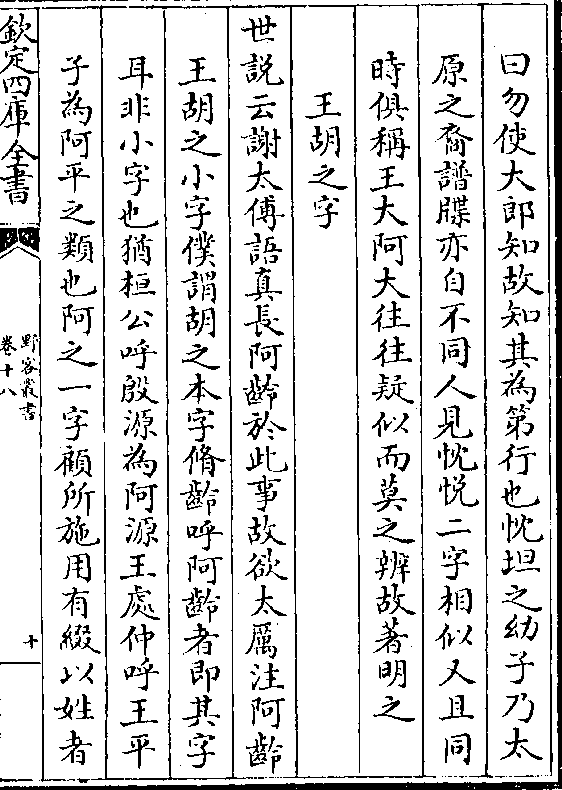 曰勿使大郎知故知其為第行也忱坦之幼子乃太
原之裔譜牒亦自不同人見忱悅二字相似又且同
時俱稱王大阿大往往疑似而莫之辨故著明之
王胡之字
世説云謝太傅語真長阿齡於此事故欲太厲注阿齡
王胡之小字僕謂胡之本字脩齡呼阿齡者即其字
耳非小字也猶桓公呼殷源為阿源王處仲呼王平
子為阿平之類也阿之一字顧所施用有綴以姓者
欽定四庫全書
野客叢書
卷十八
十